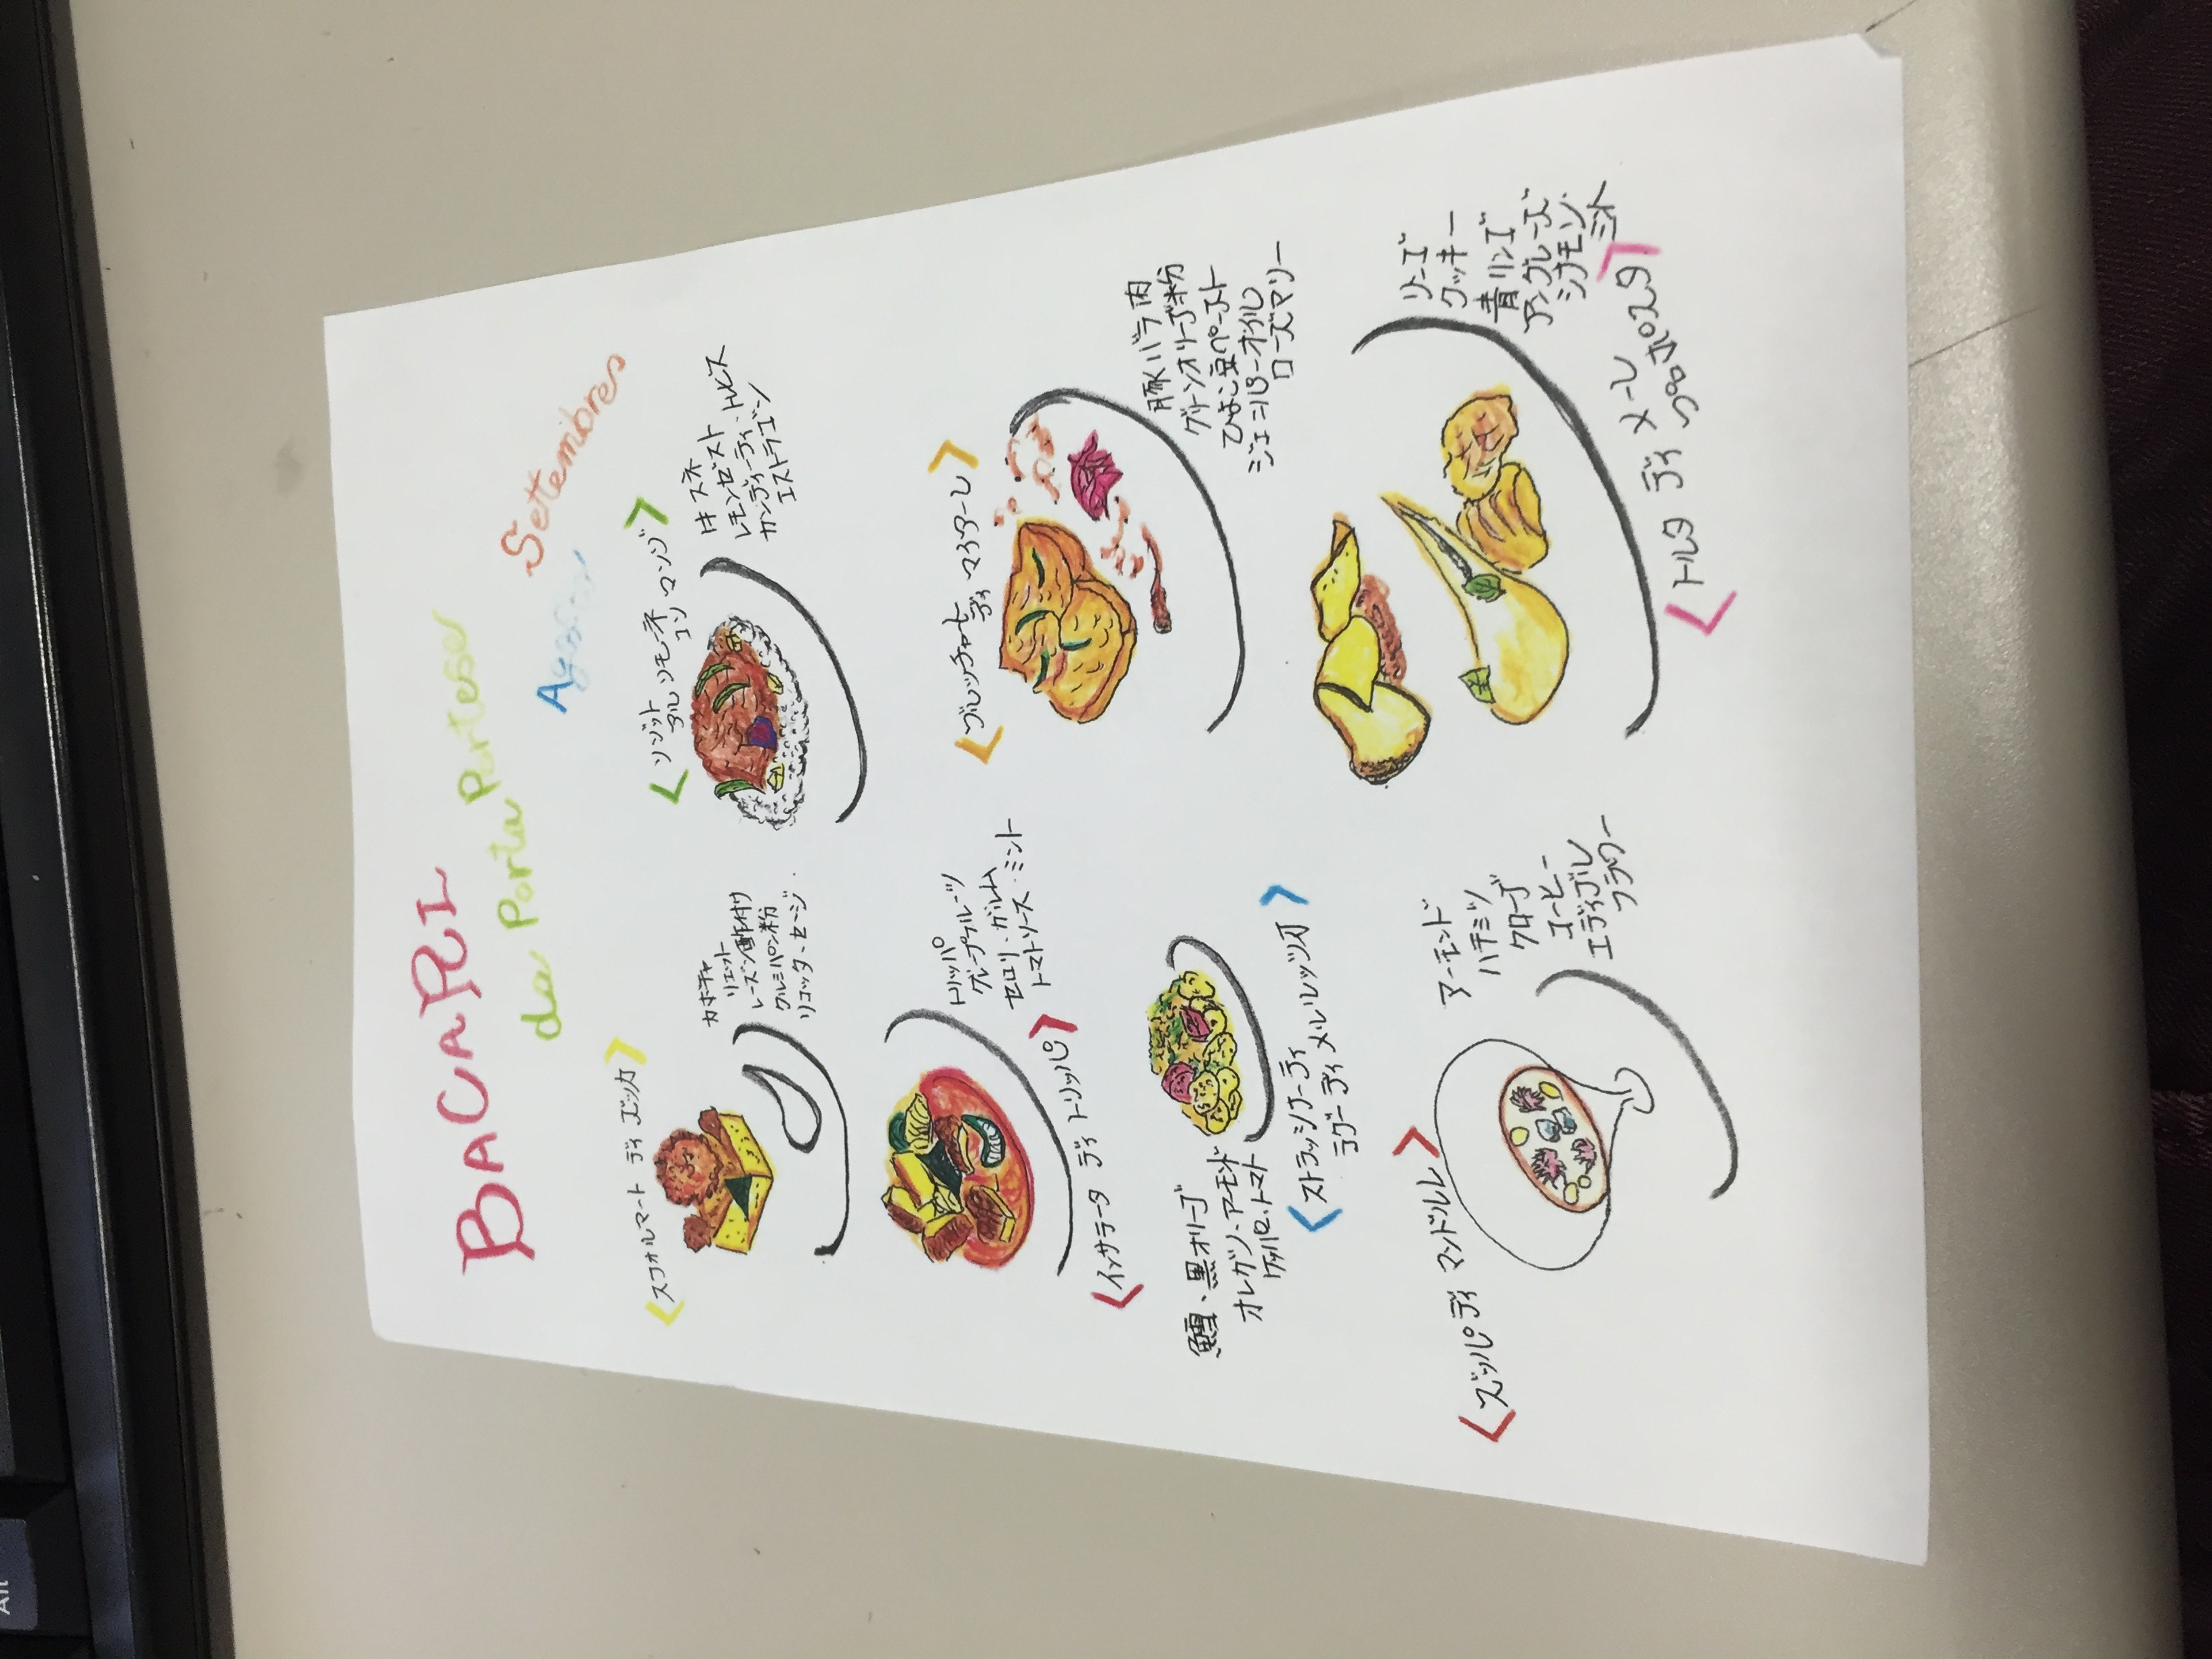 BACARI
da Porta Portese
Agosto
Settembres
<スフォルマート ディ ズッカ>
カボチャ
リエット
レーズン酢付け
グルミパン粉
リコッタ、セージ
<リゾット
アル リモーネ
コン マンゾ>
牛スネ
レモンゼスト
カンディーティ・トレビス
エストラゴン
トリッパ
グレープフルーツ
セロリ・ガルム
トマトソース・ミント
<インサラータ ディ トリッパ>
<ブレッチャーレ
ディ マイアーレ>
豚バラ肉
グリーンオリーブ粉
ひよこ豆ペースト
ジェニパーオイル
ローズマリー
鱈、黒オリーブ
オレガノ・アーモンド
ケッパー、トマト
<ストラッシナーティ
ラグーディ メルルッツオ>
リンゴ
クッキー
青リンゴ
アングレーズ
シナモン・
ミント
<トルタ ディ メーレ
スポポスタ>
<ズッパ ディ マンドルレ>
アーモンド
ハチミツ
クローブ
コーヒー
エディブル
フラワー
Alt